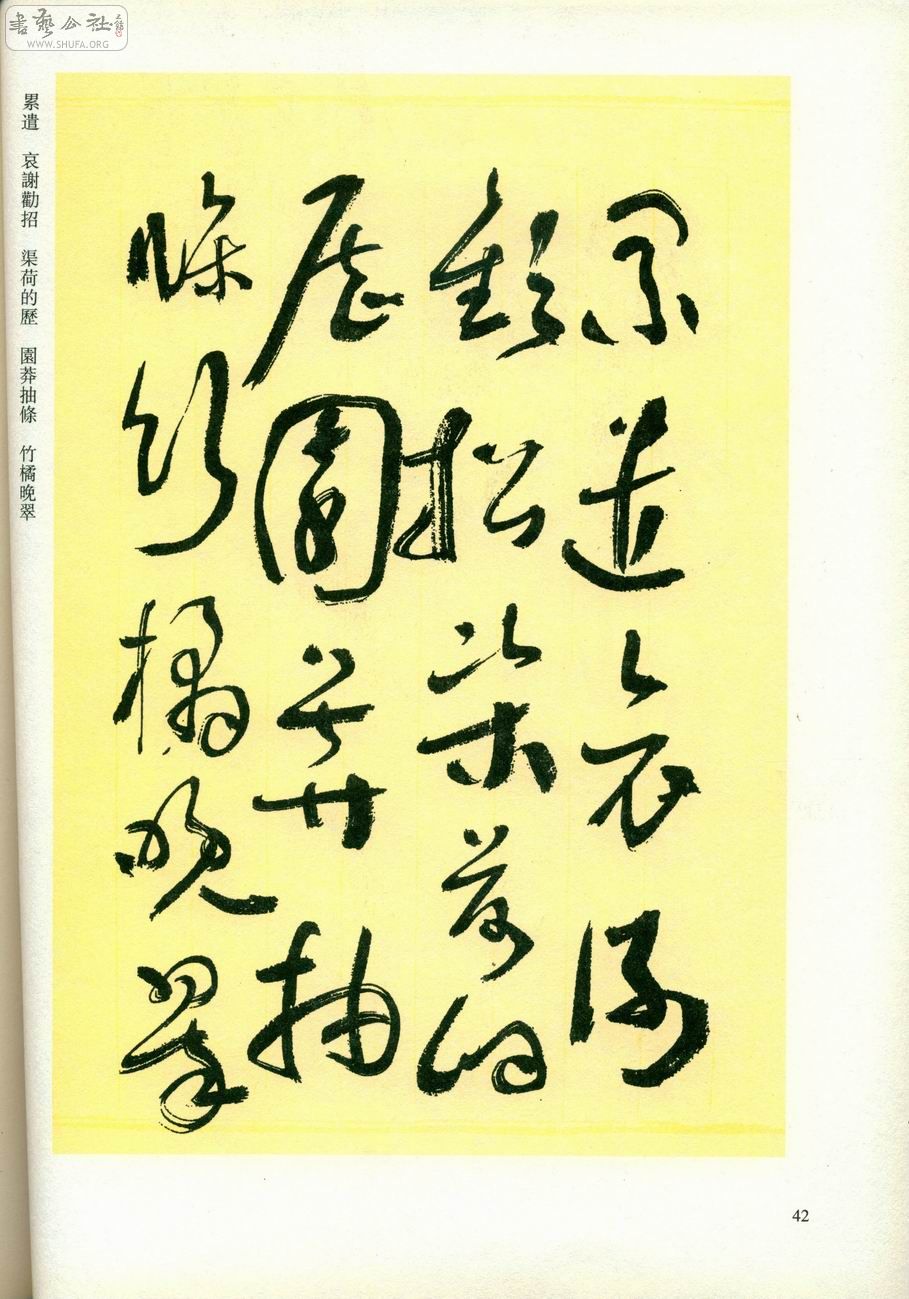 書藝公社
WWW.SHUFA.ORG
累遣哀謝
歡招渠荷的
歷園莽抽
條竹橘晚翠
累遣　哀謝勸招　渠荷的歷　園莽抽條　竹橘晚翠
42